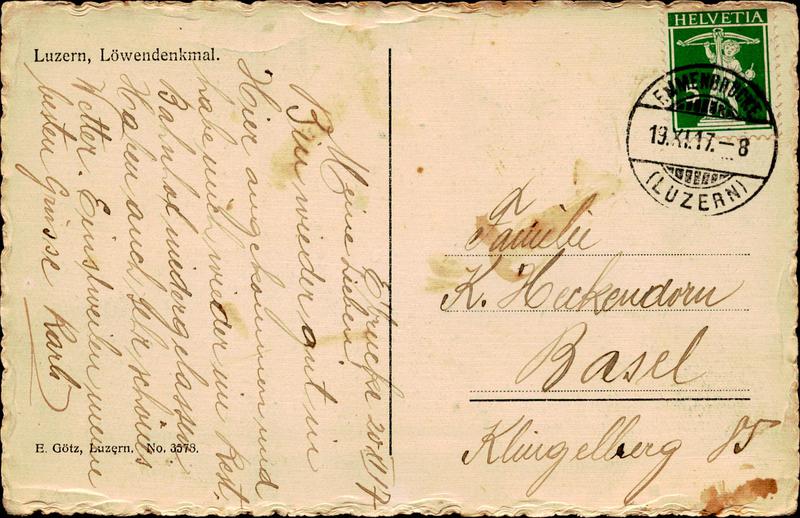 Luzern, Löwendenkmal.
E'brücke 20.XI.17
Meine Lieben!
Bin wieder gut in
Hier angekommen und
habe mich wieder im Rest.
Bahnhof niedergelassen
Haben auch sehr schönes
Wetter. Einstweilen meine
besten Grüsse Karl
E. Götz, Luzern. No. 3578.
HELVETIA
EMMENBRÜCKE
19.XI.17.–8
(LUZERN)
Familie
K. Heckendorn
Basel
Klingelberg 85